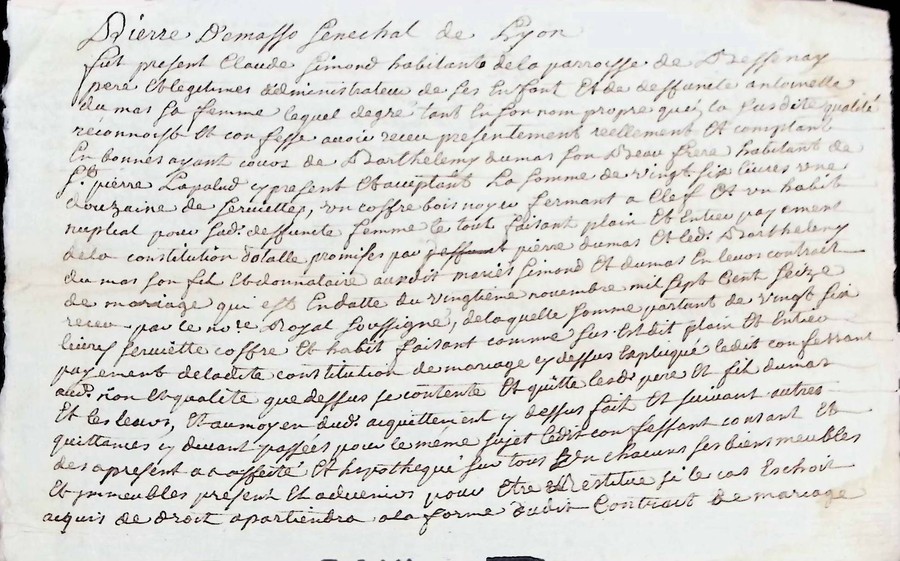 Pierre Demasso senechal de Lyon
fut present Claude Simond habitant de la parroisse de Bessenay
pere et legitimes administrateur de ses enfant et de deffuncte antoinette
du mas sa femme lequel degré tant en son nom propre que en la susdite qualité
reconnoist et confesse avoir receu presentement reellement et comptant
en bonnes ayant cours de Barthelemy dumas son Beau frere habitant de
St. pierre Lapalud cy present et acceptant La somme de vingt six livres une
douzaine de serviettes, un coffre bois noyer fermant a clef et un habit
nuptial pour sad. deffuncte femme le tout faisant plain et entier payement
dela constitution dotalle promises par pierre dumas et led. Barthelemy
du mas son fil et donnataire audit mariés Simond et dumas en leurs contrait
de mariage qui est en datte du vingtieme novembre mil sept cent seize
receu par ce nore Royal soussigné, delaquelle somme partant de vingt six
livres serviette coffre et habit faisant comme sus est dit plain et entier
payement deladite constitution de mariage cy dessus expliqué ledit confessant
aud. non et qualité que dessus se contente et quitte lesd. pere et fil dumas
et les leurs, et au moyen dud. acquittement cy dessus fait et suivant autres
quittances cy devant passées pour le meme sujet ledit confessant consant et
des apresent a affecté et hypothequé sur tous un chacuns ses biens meubles
et immeubles présent et advenirs pour etre Restitue si le cas Eschoit
acquis de droit apartiendra a la forme dudit Contrait de mariage